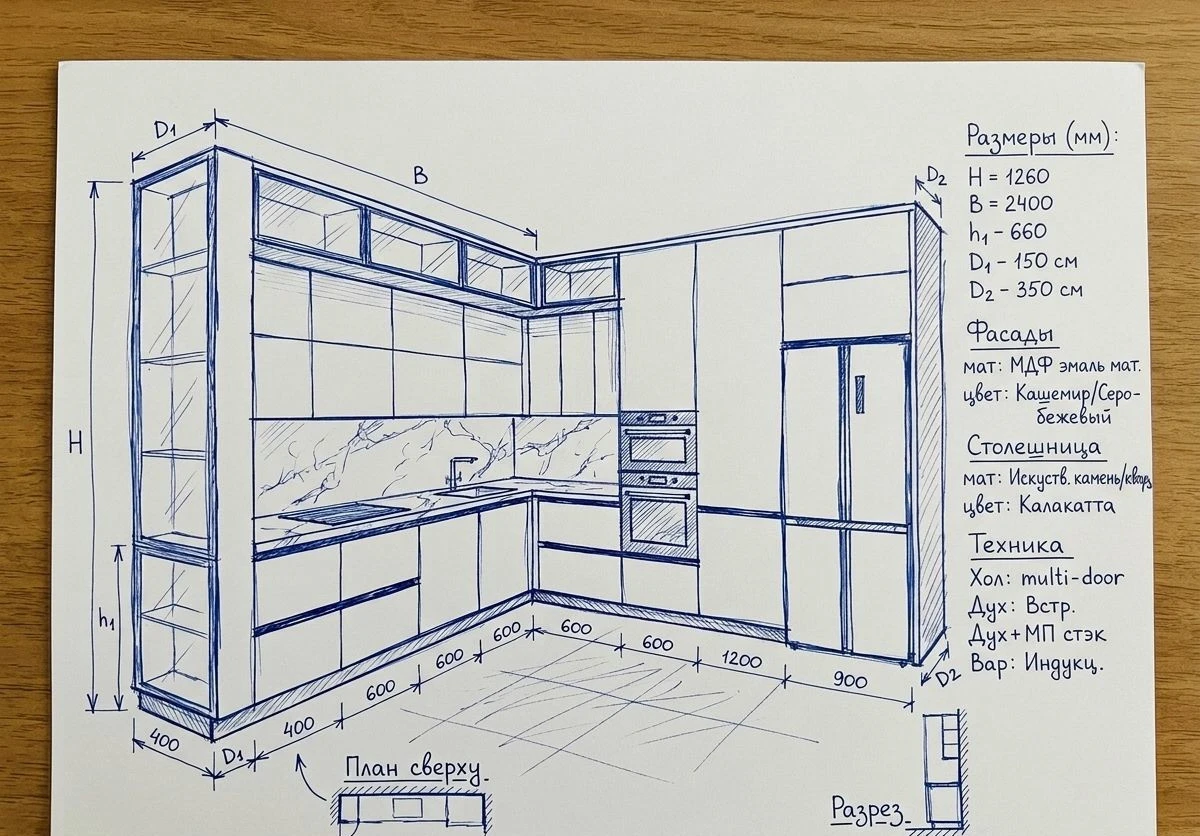 D₁
B
D₂
H
h₁
400
D₁
400
600
600
600
600
600
1200
900
D₂
План сверху.
Разрез.
Размеры (мм):
H = 1260
B = 2400
h₁ - 660
D₁ - 150 см
D₂ - 350 см
Фасады
мат: МДФ эмаль мат.
цвет: Кашемир/Серо-
бежевый
Столешница
мат: Искуств. камень/кварц
цвет: Калакатта
Техника
Хол: multi-door
Дух: Встр.
Дух+МП стэк
Вар: Индукц.